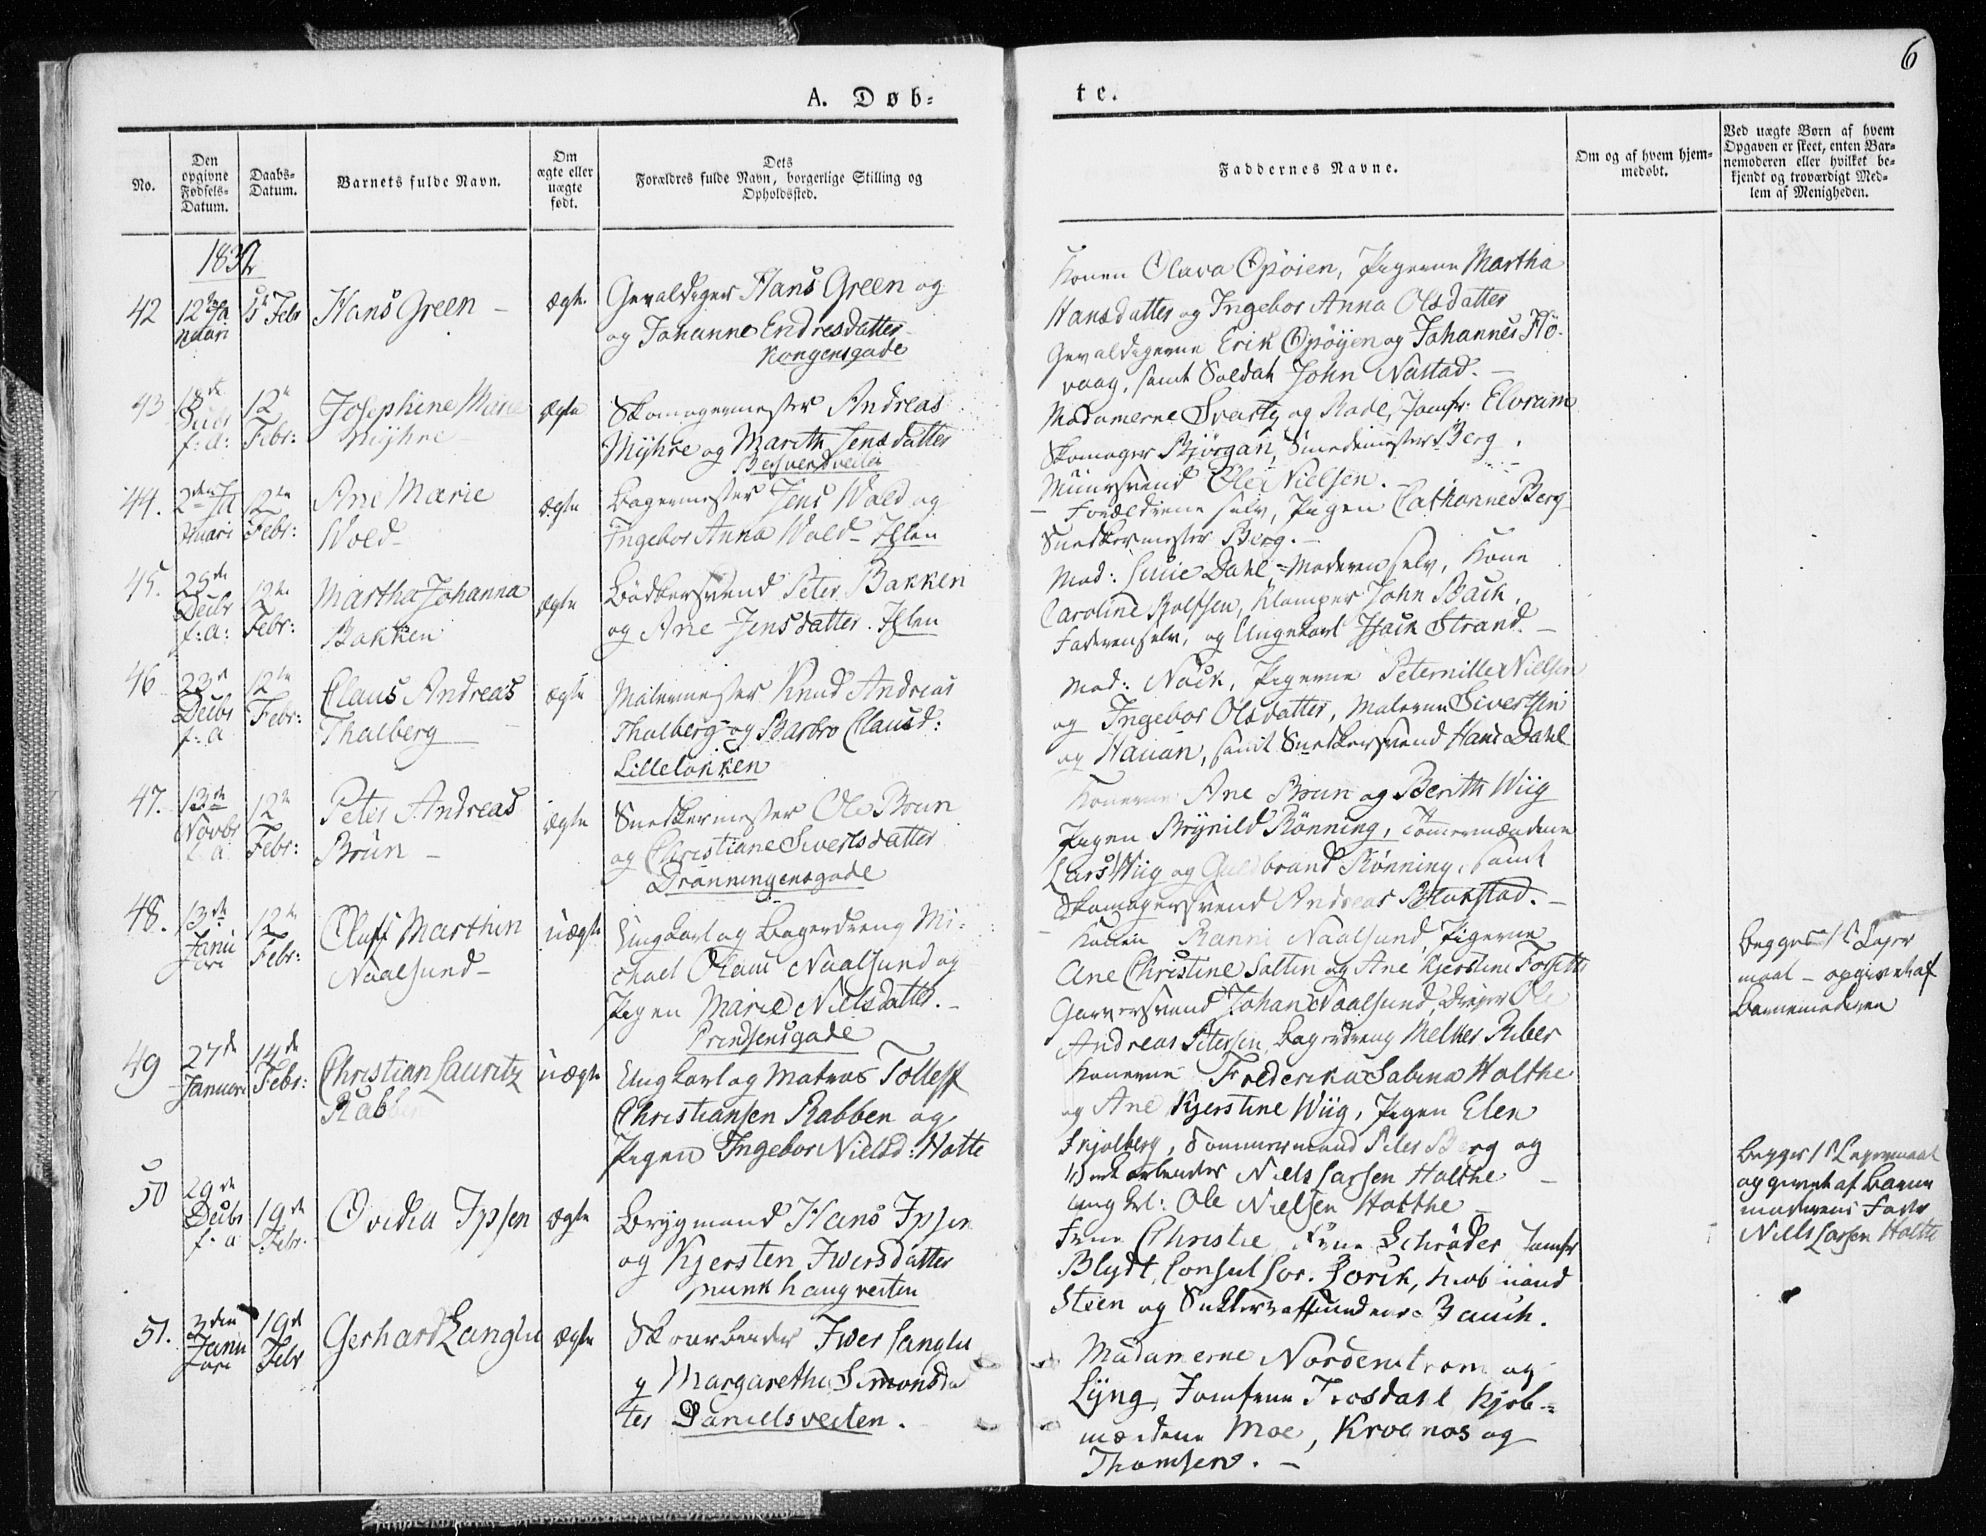 6
A. Døb-
te.
No.
Den opgivne Fødsels-Datum.
Daabs-Datum.
Barnets fulde Navn.
Om ægte eller uægte født.
Dets
Forældres fulde Navn, borgerlige Stilling og
Opholdssted.
Faddernes Navne.
Om og af hvem hjem-
medøbt.
Ved uægte Børn af hvem
Opgaven er skeet, enten Bar-
nemoderen eller hvilket be-
kjendt og troværdigt Med-
lem af Menigheden.
1832
42 12te Januari 5te Febr Hans Green – ægte
Gevaldiger Hans Green og
og Johanne Endresdatter
Kongensgade
Konen Olava Opøien, Pigerne Martha
Hansdatter og Ingebor Anna Olsdatter
Gevaldigerne Erik Opøyen og Johannes Hø-
vaag, samt Soldat John Nastad. –
43 18de Decbr f: a: 12te Febr: Josephine Marie Myhre – ægte
Skomagermester Andreas
Myhre og Marith Jensdatter
Madamerne Svartz og Rade, Jomfr: Elvram
Skomager Bjørgan, Smedemester Berg.
Muursvend Ole Nielsen.
44. 2den Januari 12te Febr: Ane Marie Wold – ægte
Bagermester Jens Wold og
Ingebor Anna Wold – Ihlen
– Forældrene selv, Pigen Cathanne Berg
Snedkermester Berg. –
45. 29de Decbr f: a: 12te Febr: Martha Johanna Bakken ægte
Bødkersvend Peter Bakken
og Ane Jensdatter. Ihlen
Mad: Dahl – Moderen selv, Kone
Caroline Rolfsen, Klamper John Back,
Faderen selv, og Ungekarl Isack Strand. –
46 23de Decbr f: a 12te Febr: Claus Andreas Thalberg – ægte
Malermester Knud Andreas
Thalberg og Barbro Clausd:
Lilleløkken
Mad: Nöck, Pigerne Peternille Nielsen
og Ingebor Olsdatter, Malerne Sivertsen
og Hauan, samt Snedkersvend Hans Dahl
47. 13de Novbr f: a 12te Febr: Peter Andreas Brun – ægte
Snedkermester Ole Brun
og Christiane Sivertsdatter
Dronningensgade
Konerne Ane Brun og Berith Wiig
Pigen Brynild Rönning, Tömmermændene
Lars Wiig og Guldbrand Rönning, samt
Skomagersvend Andreas –
48. 13de Januari 12te Febr: Oluff Marthin Naalsund – uægte
Ungkarl og Bagerdreng Mi-
chael Olaui Naalsund og
Pigen Marie Nielsdatter. –
Prindsensgade
– Konen Ranni Naalsund, Pigerne
Ane Christine Salten og Ane Kjerstine Forseth
Garversvend Johan Naalsund, Ole
Andreas Petersen, Bagerdreng Melkes Riber
Begges 1ste Lejer
maal – opgivet af
Barnemoderen
49 27de Januari 14de Febr: Christian Lauritz Rabben uægte
Ungkarl og Matros Tolleff
Christiansen Rabben og
Pigen Ingebor Nielsd: Holte
Konerne Frederika Sabina Holthe
og Ane Kjerstine Wiig, Pigen Elen
Fnjolberg, Tømmermand Peter Berg og
Niels Larsen Holthe –
ungkl: Ole Nielsen Holthe –
Begges 1ste Lejermaal
opgivet af Barne
moderens Fader
Niels Larsen Holthe
50 29de Decbr f: a 19de Febr. Ovidia Ipsen ægte
Brygmand Hans Ipsen
og Kjersten Iversdatter
Munkhaugveiten
Frue Christie, Frue Schrøder, Jomfr
Blydt, Consul Lorck, Kiøbmand
Steen og Bauck.
51. 3den Januari 19de Febr Gerhard Langlie ægte
Skoarbeider Iver Langlie
og Margarethe Simonsdat
ter Danielsveiten.
Madamerne Nordenstrøm og
Lÿng, Jomfrue Trosdahl Kjøb-
mændene Moe, Krognos og
Thomsen. –